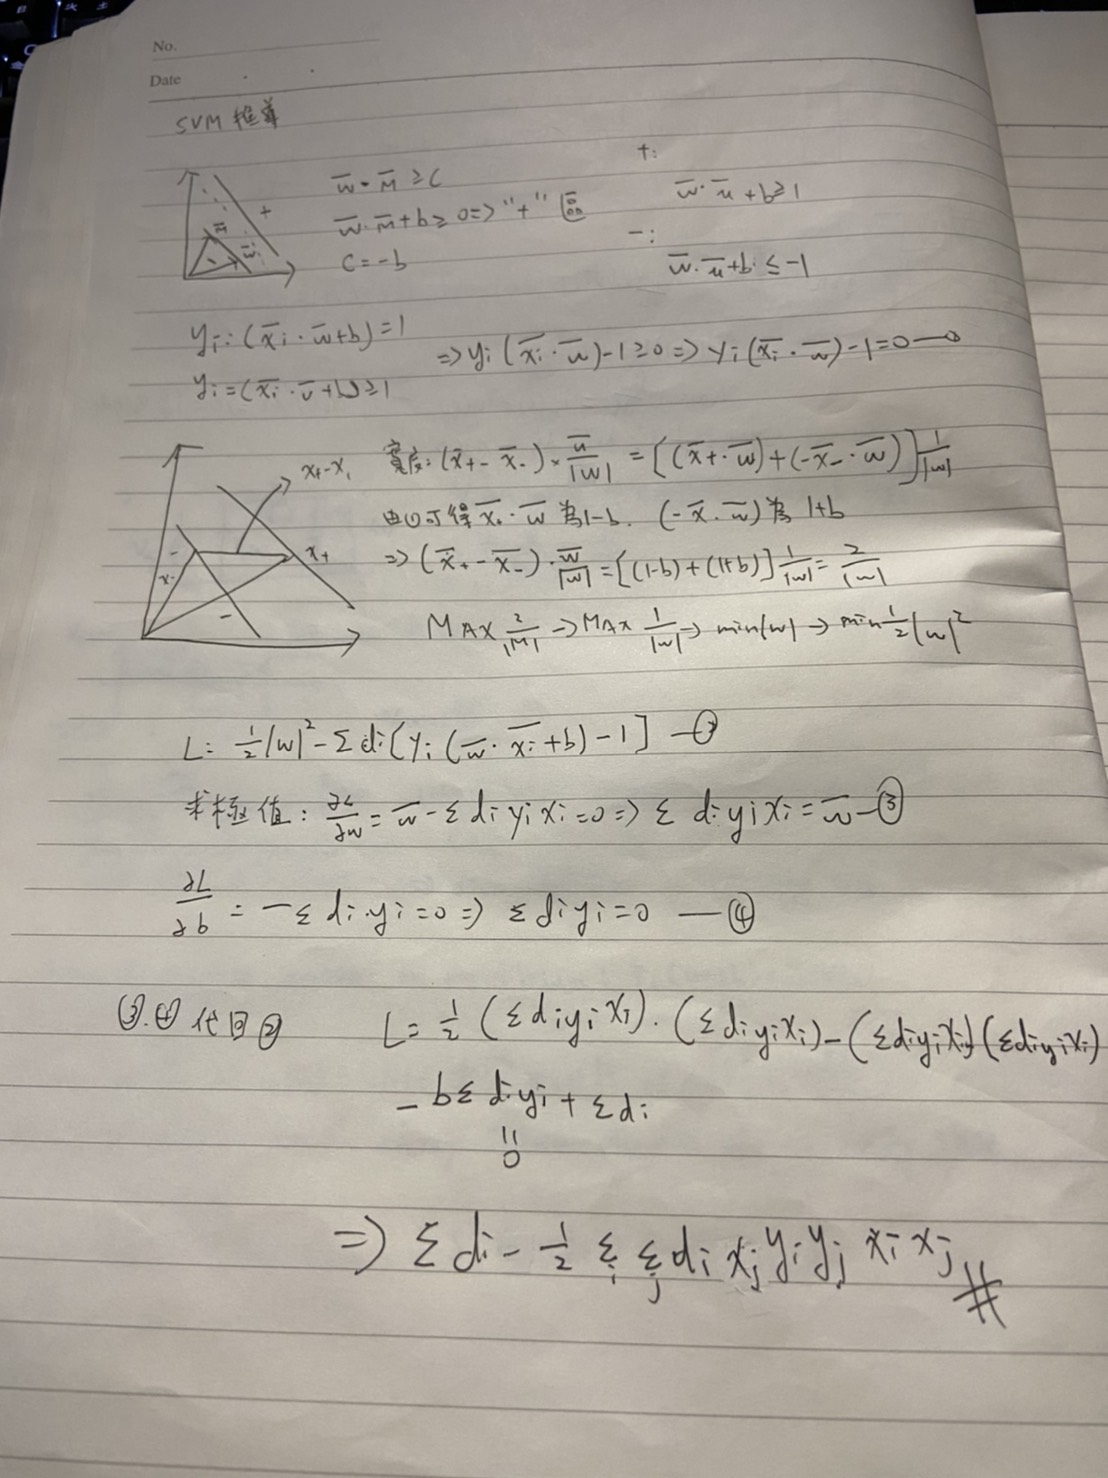 No.
Date
SVM 推導
w̅ · M̅ ≥ C
w̅ · M̅ + b ≥ 0 => "+" 區
C = -b
+:
w̅ · u̅ + b ≥ 1
-:
w̅ · u̅ + b ≤ -1
yi: (x̅i · w̅ + b) = 1
yi = (x̅i · v̅ + b) ≥ 1
=> yi (x̅i · w̅) - 1 ≥ 0 => yi (x̅i · w̅) - 1 = 0 —①
x+ - x
x+
寬度: (x̅+ - x̅-) · u̅/|w| = [(x̅+ · w̅) + (-x̅- · w̅)] 1/|w|
由①可得 x̅+ · w̅ 為 1-b. (-x̅ · w̅) 為 1+b
=> (x̅+ - x̅-) · w̅/|w| = [(1-b) + (1+b)] 1/|w| = 2/|w|
MAX 2/|M| -> MAX 1/|w| -> min|w| -> min 1/2 |w|²
L = 1/2 |w|² - Σ di [yi (w̅ · x̅i + b) - 1] —②
求極值: ∂L/∂w = w̅ - Σ di yi xi = 0 => Σ di yi xi = w̅ —③
∂L/∂b = -Σ di · yi = 0 => Σ di yi = 0 —④
③.④ 代回② L = 1/2 (Σ di yi xi) · (Σ di yi xi) - (Σ di yi xi)(Σ di yi xi)
- b Σ di yi + Σ di
=
0
=> Σ di - 1/2 Σi Σj di xj yi yj xi xj #